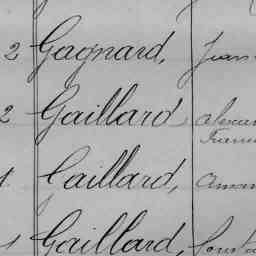 2 Gagnard, Jean
2 Gaillard, alexan
Franc
1 Gaillard, aman
1 Gaillard, Const